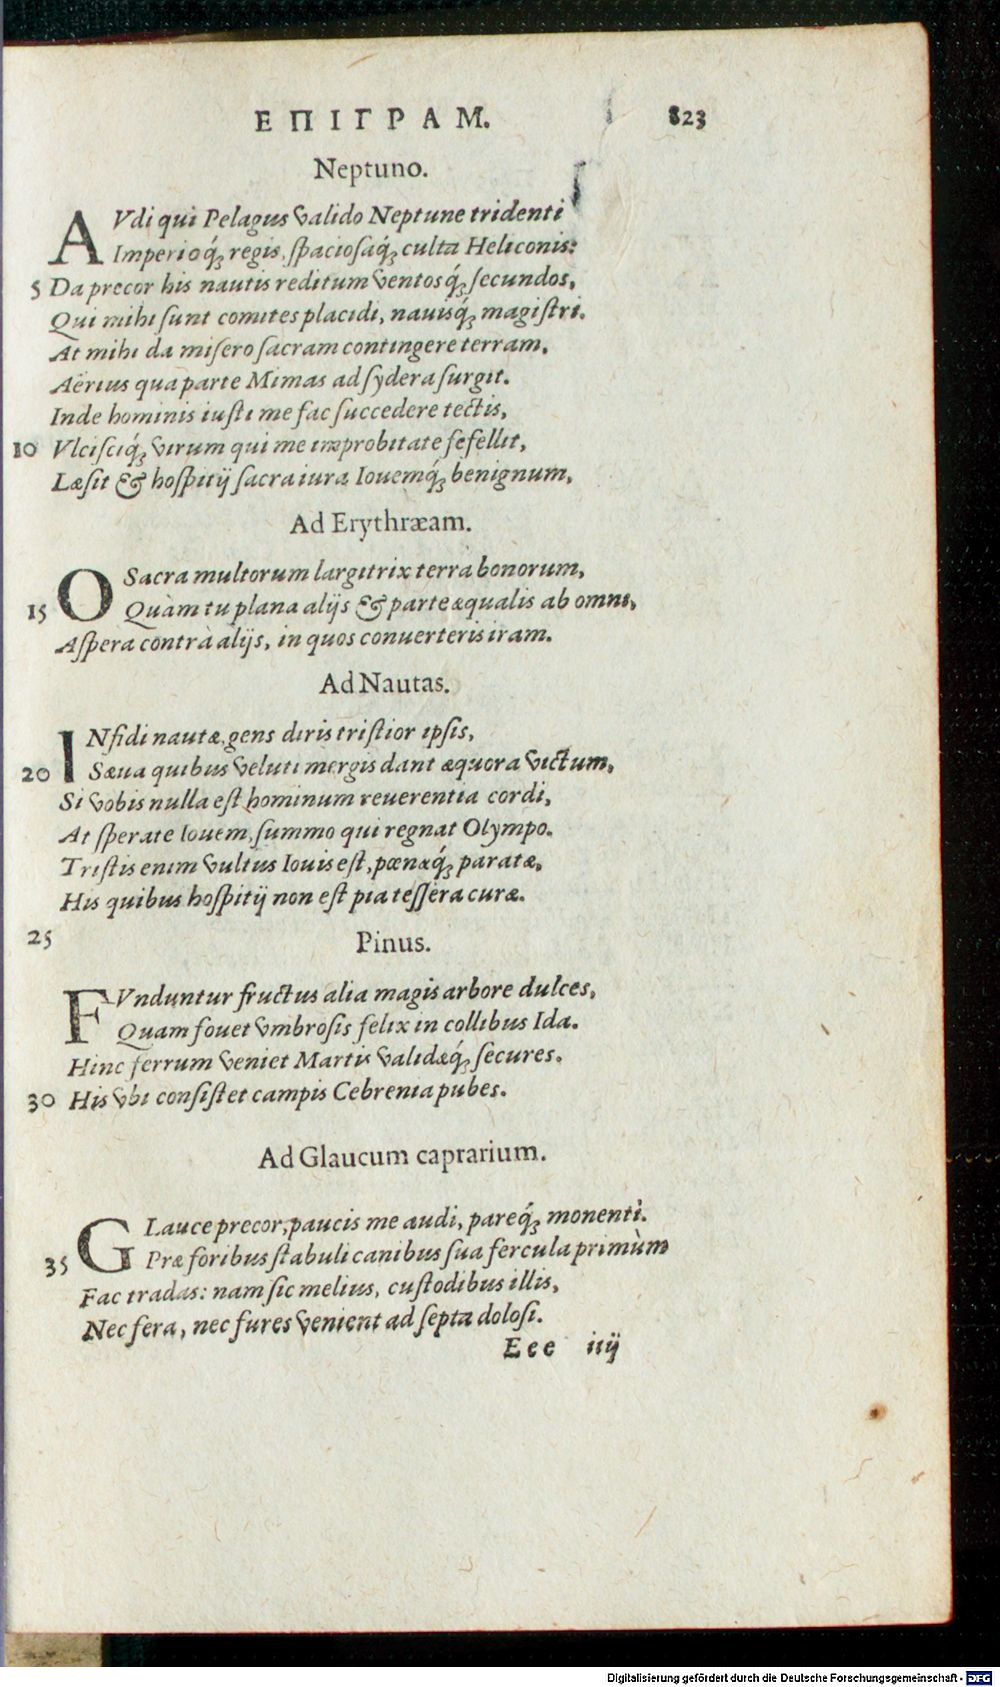 ΕΠΙΓΡΑΜ. 823
Neptuno.
AVdi qui Pelagus valido Neptune tridenti
Imperioq́; regis, spaciosaq́; culta Heliconis:
5 Da precor his nautis reditum ventosq́; secundos,
Qui mihi sunt comites placidi, nauisq́; magistri.
At mihi da misero sacram contingere terram,
Aërius qua parte Mimas ad sydera surgit.
Inde hominis iusti me fac succedere tectis,
10 Vlcisciq́; virum qui me improbitate fefellit,
Læsit & hospitij sacra iura Iouemq́; benignum,
Ad Erythræam.
O Sacra multorum largitrix terra bonorum,
15 Quàm tu plana alijs & parte æqualis ab omni,
Aspera contrà alijs, in quos conuerteris iram.
Ad Nautas.
INfidi nautæ, gens diris tristior ipsis,
20 Sæua quibus veluti mergis dant æquora victum,
Si vobis nulla est hominum reuerentia cordi,
At sperate Iouem, summo qui regnat Olympo.
Tristis enim vultus Iouis est, pœnæq́; paratæ,
His quibus hospitij non est pia tessera curæ.
25 Pinus.
FVnduntur fructus alia magis arbore dulces,
Quam fouet vmbrosis felix in collibus Ida.
Hinc ferrum veniet Martis validæq́; secures.
30 His vbi consistet campis Cebrenia pubes.
Ad Glaucum caprarium.
GLauce precor, paucis me audi, pareq́; monenti.
35 Præ foribus stabuli canibus sua fercula primùm
Fac tradas: nam sic melius, custodibus illis,
Nec fera, nec fures venient ad septa dolosi.
Eee iiij
Digitalisierung gefördert durch die Deutsche Forschungsgemeinschaft - DFG